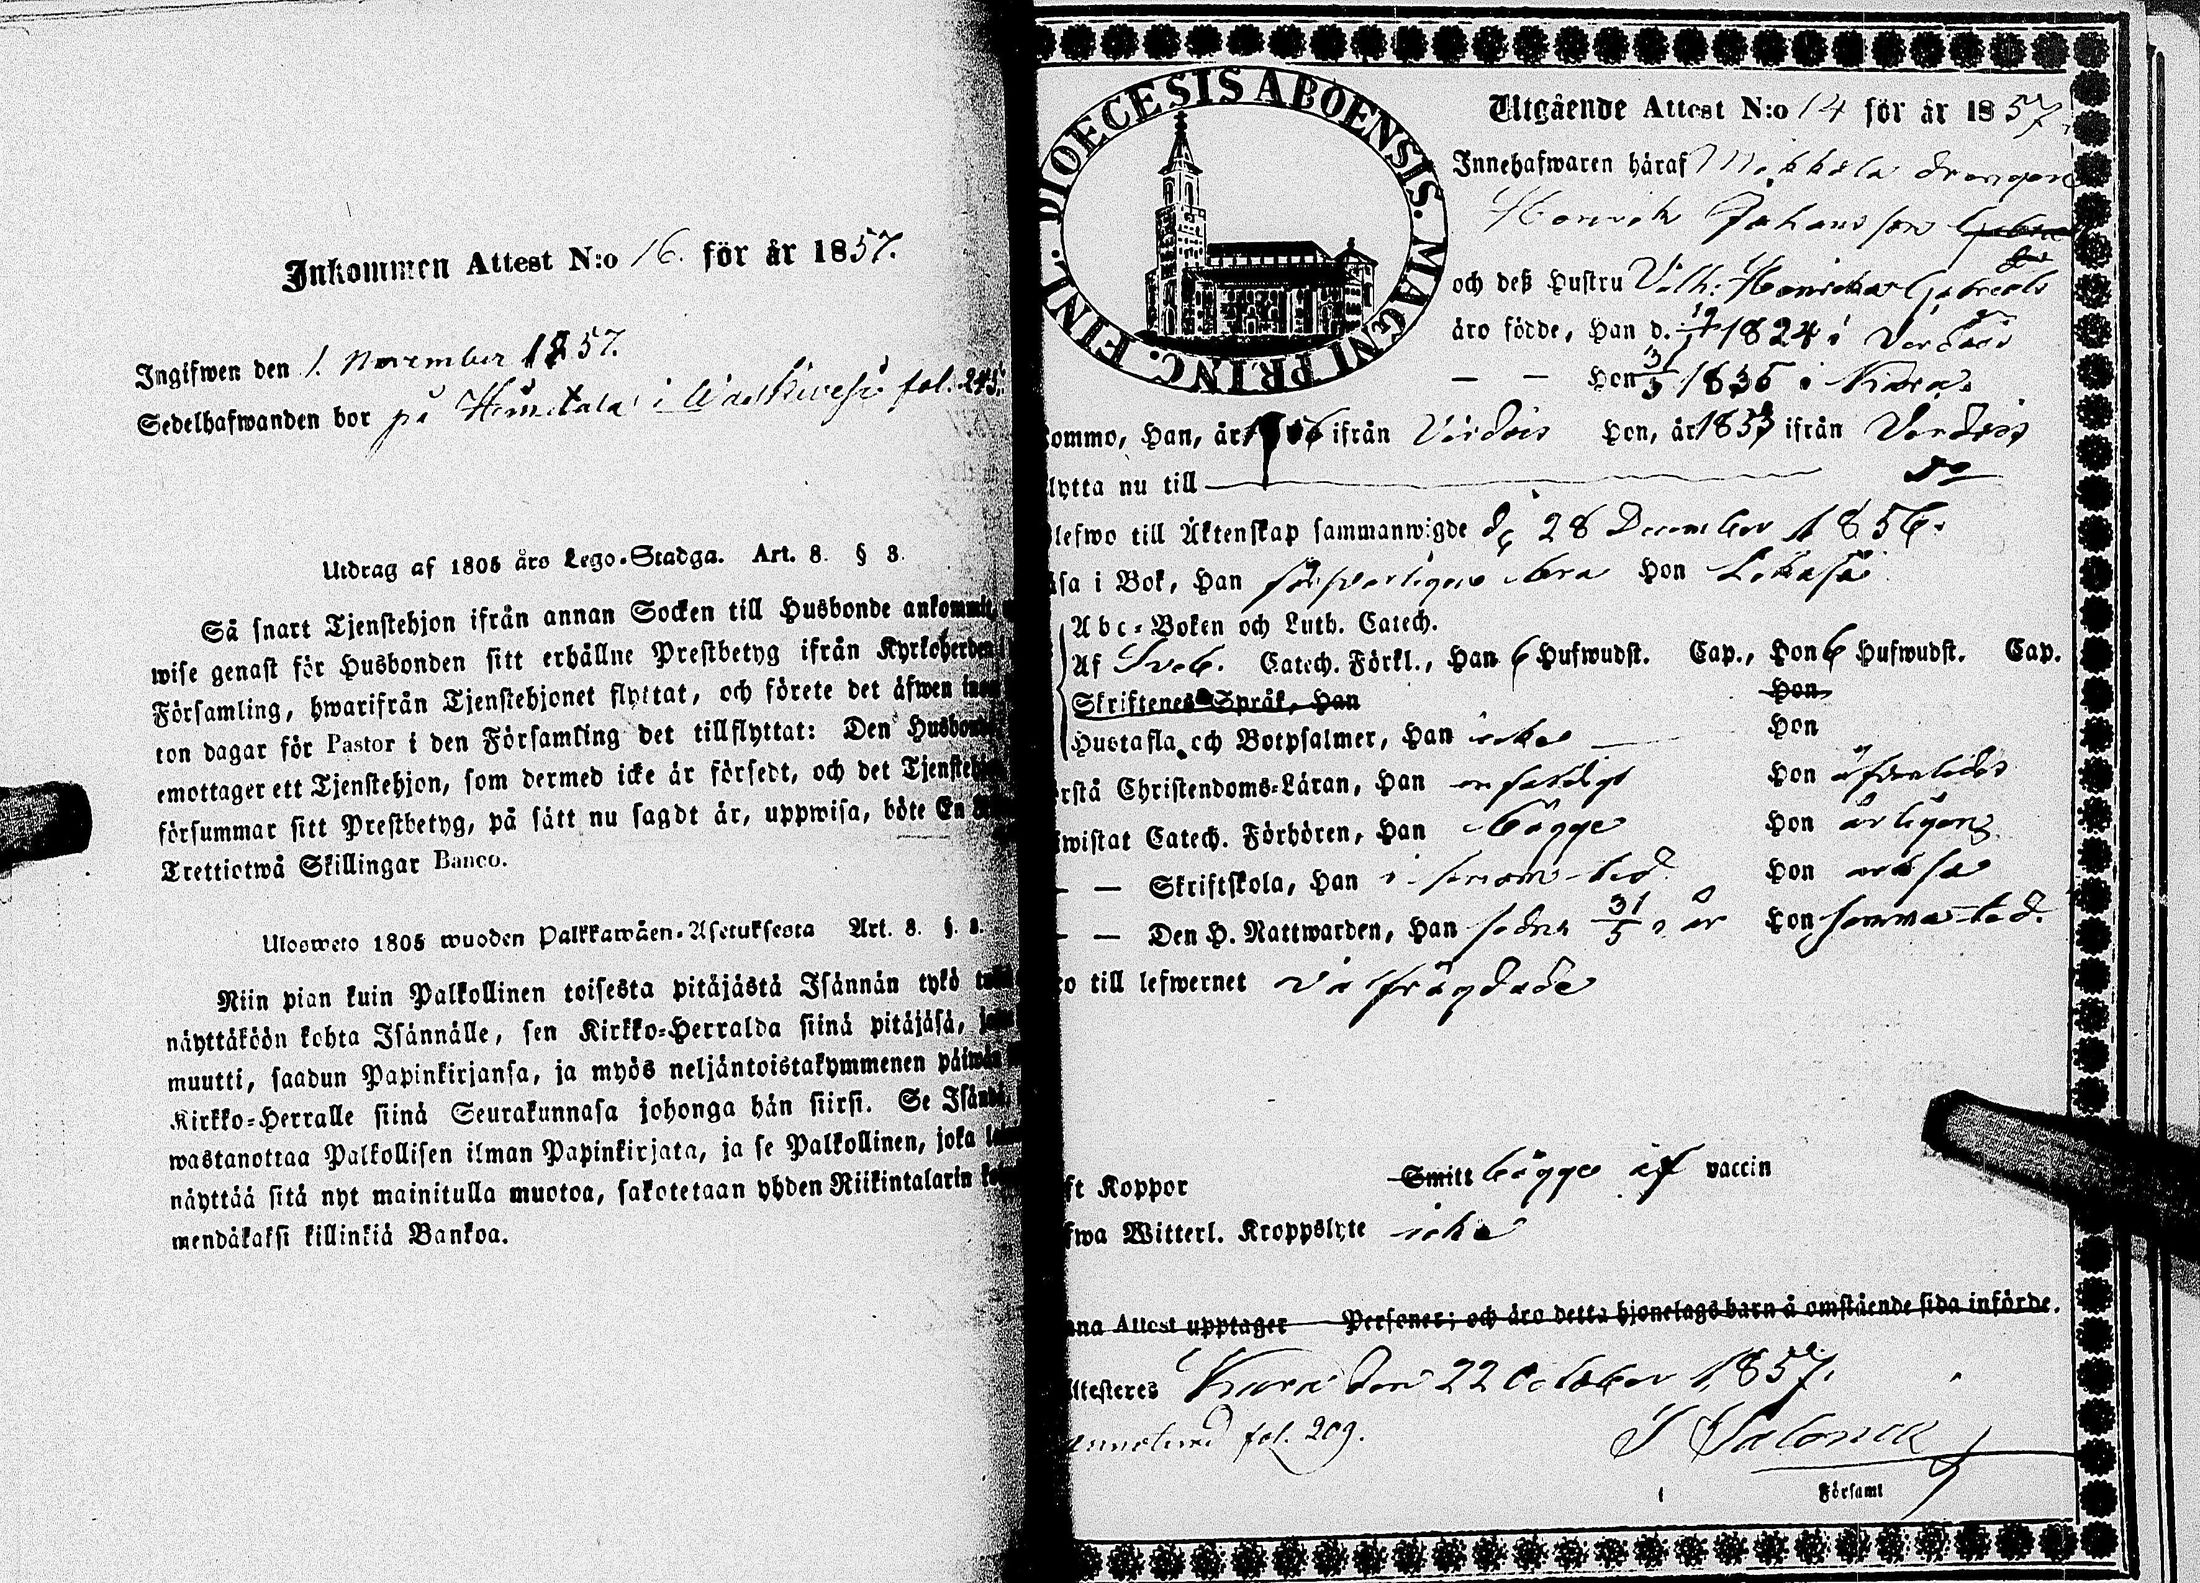 Inkommen Attest N:o 16. för år 1857.
Ingifwen den 1. November 1857.
Sedelhafwanden bor på i fol. 245.
Utdrag af 1805 års Lego-Stadga. Art. 8. § 3.
Så snart Tjenstehjon ifrån annan Socken till Husbonde ankommit,
wise genast för Husbonden sitt erhållne Prestbetyg ifrån Kyrkoherden
Församling, hwarifrån Tjenstehjonet flyttat, och förete det äfwen inom
ton dagar för Pastor i den Församling det tillflyttat: Den Husbonde,
emottager ett Tjenstehjon, som dermed icke är försedt, och det Tjenstehjon
försummar sitt Prestbetyg, på sätt nu sagdt är, uppwisa, böte En
Trettiotwå Skillingar Banco.
Ulosweto 1805 wuoden Palkkawäen-Asetuksesta Art. 8. §. 3.
Niin pian kuin Palkollinen toisesta pitäjästä Isännän tykö
näyttäköön kohta Isännälle, sen Kirkko-Herralda siinä pitäjäsä,
muutti, saadun Papinkirjansa, ja myös neljäntoistakymmenen päiwän
Kirkko-Herralle siinä Seurakunnasa johonga hän siirsi. Se Isändä,
wastanottaa Palkollisen ilman Papinkirjata, ja se Palkollinen, joka
näyttää sitä nyt mainitulla muotoa, sakotetaan yhden Riikintalarin
mendäkaksi killinkiä Bankoa.
FINL. DIOECESIS ABOENSIS. MAGNI PRINC.
Utgående Attest N:o 14 för år 1857.
Innehafwaren häraf Drengen
Henrik Johansson
och deß Hustru Vilh: Henrika Gabriels
äro födde, Han d. 1824 i Vårdois
— — Hon 1835 i Karu
ommo, Han, år 1856 ifrån Vårdois Hon, år 1853 ifrån Vårdois
lytta nu till do
lefwo till Äktenskap sammanwigde d. 28 December 1856.
äsa i Bok, Han försvarligen bra Hon Likaså
Abc-Boken och Luth. Catech.
Af Sveb. Catech. Förkl., Han 6 Hufwudst. Cap., Hon 6 Hufwudst. Cap.
Skriftenes Språk, Han Hon
Hustafla och Botpsalmer, Han icke Hon
rstå Christendoms-Läran, Han enfaldigt Hon äfvenledes
iwistat Catech. Förhören, Han bägge Hon årligen
— — Skriftskola, Han i Hon
— — Den H. Nattwarden, Han sedn 31/5 i år Hon
o till lefwernet oförvitlige
ft Koppor Smitt bägge af vaccin
fwa Witterl. Kroppslyte icke
nna Attest upptager — Personer; och äro detta hjonelags barn å omstående sida införde.
ttesteres Karu den 22 October 1857.
fol. 209.
Församl